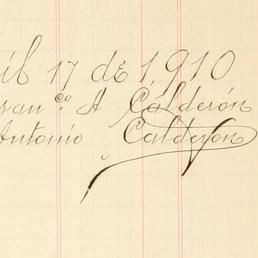 il 17 de 1,910
ran.co A Calderón
Antonio Calderon